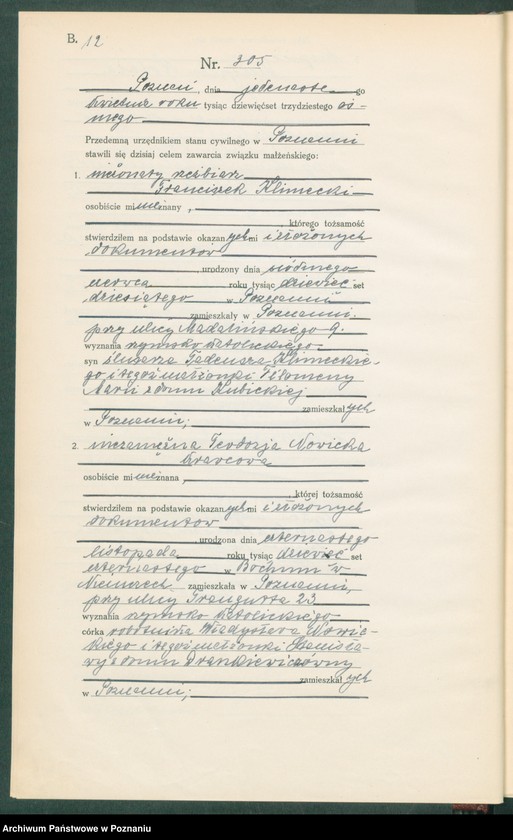 B. 12
Nr. 305
Poznań, dnia jedenastego
kwietnia roku tysiąc dziewięćset trzydziestego ós-
mego
Przedemną urzędnikiem stanu cywilnego w Poznaniu
stawili się dzisiaj celem zawarcia związku małżeńskiego:
1. nieżonaty rzeźbiarz
Franciszek Klimecki
osobiście mi nieznany,
, którego tożsamość
stwierdziłem na podstawie okazanych mi i złożonych
dokumentów
, urodzony dnia siódmego
czerwca roku tysiąc dziewięćset
dziesiątego w Poznaniu
zamieszkały w Poznaniu,
przy ulicy Madalińskiego 9.
wyznania rzymsko katolickiego
syn ślusarza Tadeusza Klimeckie-
go i tegoż małżonki Filomeny
Marii z domu Kubickiej
zamieszkałych
w Poznaniu;
2. niezamężna Teodozja Nowicka
krawcowa
osobiście mi nieznana,
, której tożsamość
stwierdziłem na podstawie okazanych mi i złożonych
dokumentów
, urodzona dnia czternastego
listopada roku tysiąc dziewięćset
czternastego w Bochum w
Niemczech zamieszkała w Poznaniu,
przy ulicy Traugutta 23
wyznania rzymsko katolickiego
córka robotnika Władysława Nowic-
kiego i tegoż małżonki Stanisła-
wy z domu
zamieszkałych
w Poznaniu;
Archiwum Państwowe w Poznaniu